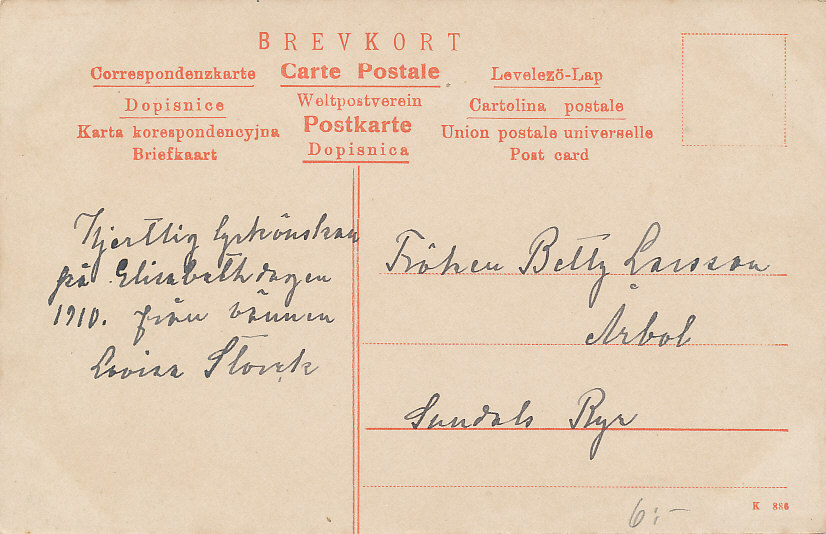 BREVKORT
Correspondenzkarte Carte Postale Levelező-Lap
Dopisnice Weltpostverein Cartolina postale
Karta korespondencyjna Postkarte Union postale universelle
Briefkaart Dopisnica Post card
Hjertlig Lyckönskan
på Elisabethdagen
1910. från vännen
Lovisa
Fröken Betty Larsson
Årbol
Sundals Ryr
K 886
6:-